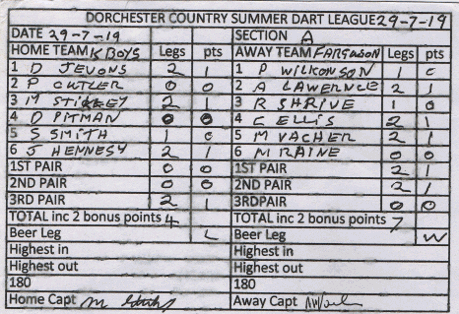 DORCHESTER COUNTRY SUMMER DART LEAGUE 29-7-19
DATE 29-7-19 SECTION A
HOME TEAM K BOYS Legs pts AWAY TEAM FARGUSON Legs pts
1 D JEVONS 2 1 1 P WILKONSON 1 0
2 P CUTLER 0 0 2 A LAWERNCE 2 1
3 M STICKLEY 2 1 3 R SHRIVE 1 0
4 D PITMAN 0 0 4 C ELLIS 2 1
5 S SMITH 1 0 5 M VACHER 2 1
6 J HENNESY 2 1 6 M RAINE 0 0
1ST PAIR 0 0 1ST PAIR 2 1
2ND PAIR 0 0 2ND PAIR 2 1
3RD PAIR 2 1 3RDPAIR 0 0
TOTAL inc 2 bonus points 4 TOTAL inc 2 bonus points 7
Beer Leg L Beer Leg W
Highest in Highest in
Highest out Highest out
180 180
Home Capt M Away Capt